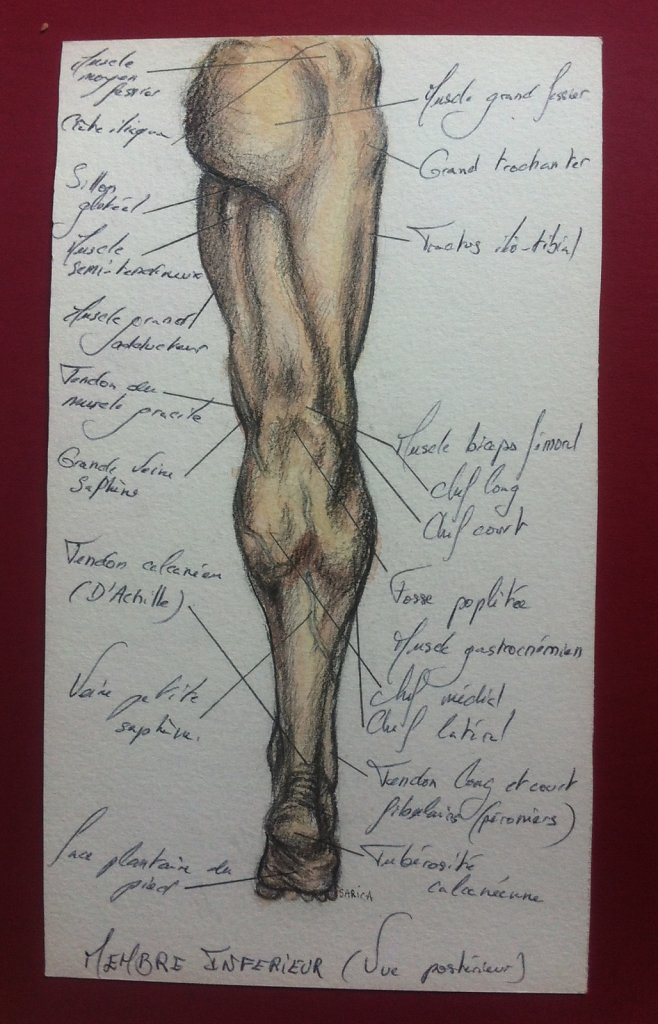 Muscle
moyen
fessier
Crête iliaque
Sillon
glutéal
Muscle
semi-tendineux
Muscle grand
adducteur
Tendon du
muscle gracile
Grande Veine
Saphène
Tendon calcanéen
(D'Achille)
Veine petite
saphène.
Face plantaire du
pied
Muscle grand fessier
Grand trochanter
Tractus ilio-tibial
Muscle biceps fémoral
chef long
Chef court
Fosse poplitée
Muscle gastrocnémien
chef médial
Chef latéral
Tendon long et court
fibulaires (péroniers)
Tubérosité
calcanéenne
SARICA
MEMBRE INFERIEUR (Vue postérieur)